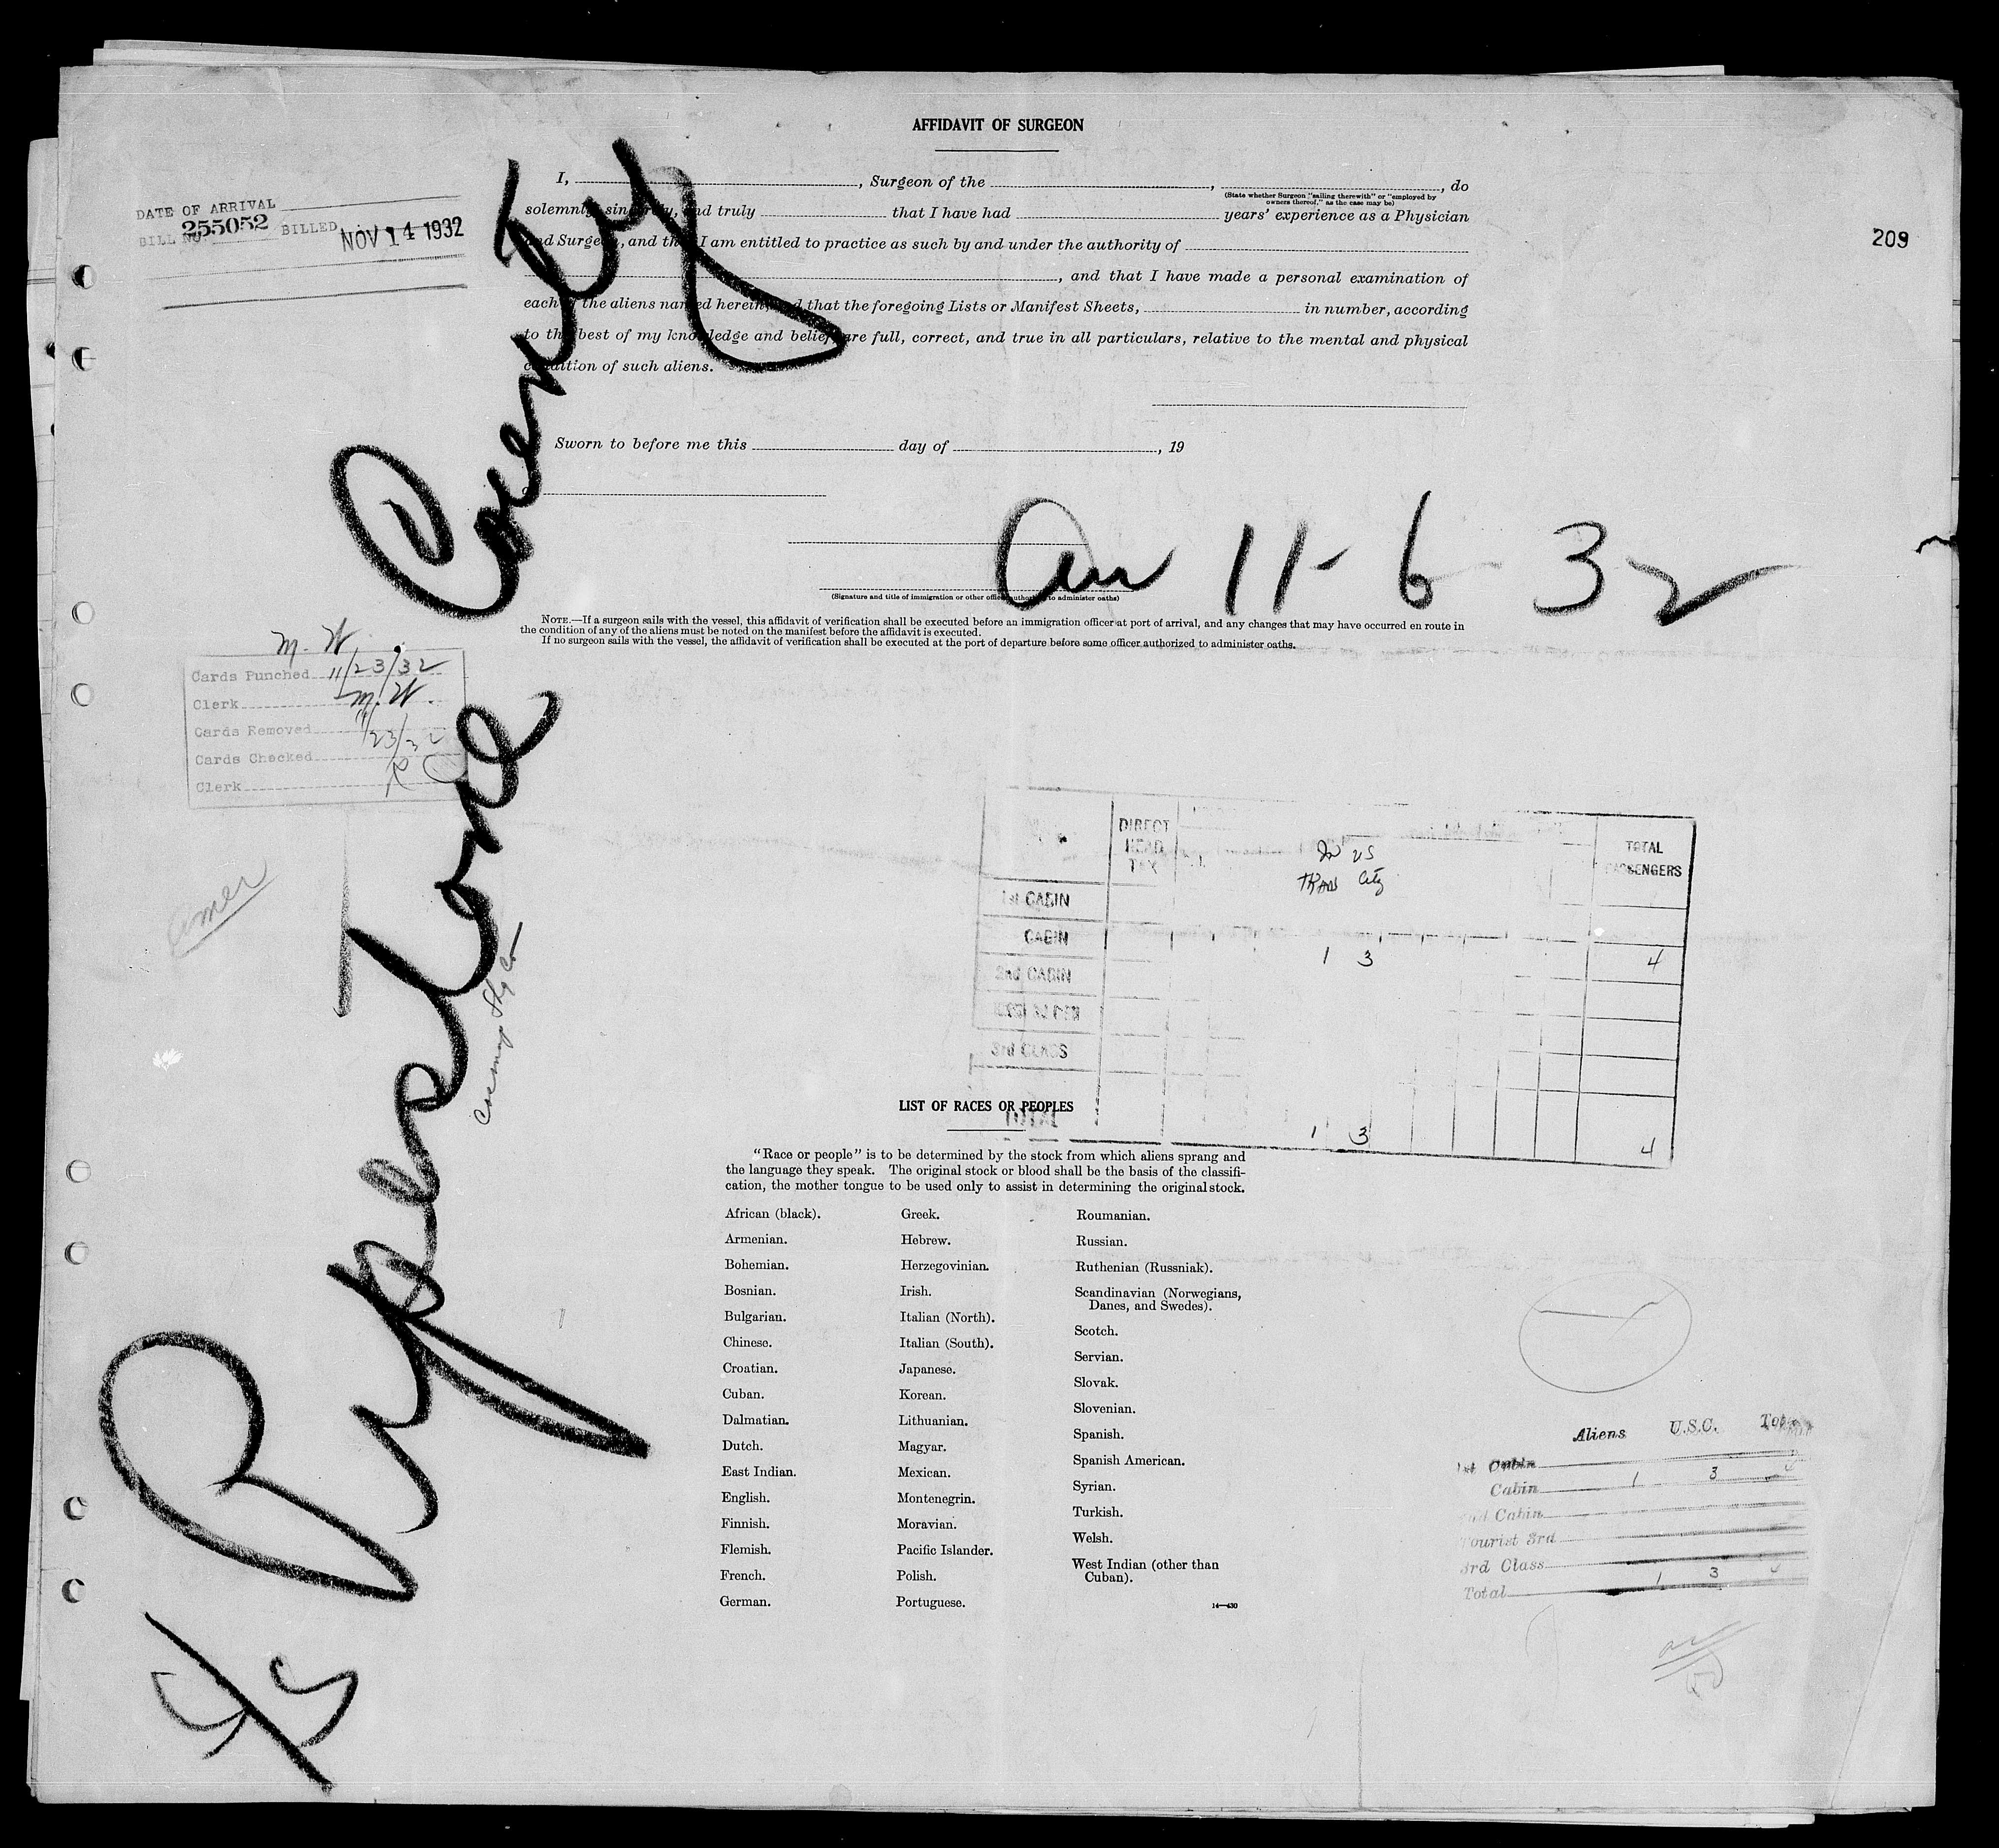 AFFIDAVIT OF SURGEON
I, , Surgeon of the , , do
(State whether Surgeon "sailing therewith" or "employed by
owners thereof," as the case may be)
solemnly, sincerely, and truly that I have had years' experience as a Physician
and Surgeon, and that I am entitled to practice as such by and under the authority of
, and that I have made a personal examination of
each of the aliens named herein, and that the foregoing Lists or Manifest Sheets, in number, according
to the best of my knowledge and belief, are full, correct, and true in all particulars, relative to the mental and physical
condition of such aliens.
Sworn to before me this day of , 19
DATE OF ARRIVAL
BILL NO. 255052 BILLED NOV 14 1932
209
Arr 11-6-32
(Signature and title of immigration or other officer authorized to administer oaths)
NOTE.—If a surgeon sails with the vessel, this affidavit of verification shall be executed before an immigration officer at port of arrival, and any changes that may have occurred en route in
the condition of any of the aliens must be noted on the manifest before the affidavit is executed.
If no surgeon sails with the vessel, the affidavit of verification shall be executed at the port of departure before some officer authorized to administer oaths.
M. W.
Cards Punched 11/23/32
Clerk M. W.
Cards Removed
Cards Checked 11/23/32
Clerk
amer
S/S Pipestone County
DIRECT HEAD TAX
TOTAL PASSENGERS
US
TRANS City
1st CABIN
CABIN 1 3 4
2nd CABIN
3rd CLASS
TOTAL 1 3 4
LIST OF RACES OR PEOPLES
"Race or people" is to be determined by the stock from which aliens sprang and
the language they speak. The original stock or blood shall be the basis of the classifi-
cation, the mother tongue to be used only to assist in determining the original stock.
African (black).
Armenian.
Bohemian.
Bosnian.
Bulgarian.
Chinese.
Croatian.
Cuban.
Dalmatian.
Dutch.
East Indian.
English.
Finnish.
Flemish.
French.
German.
Greek.
Hebrew.
Herzegovinian.
Irish.
Italian (North).
Italian (South).
Japanese.
Korean.
Lithuanian.
Magyar.
Mexican.
Montenegrin.
Moravian.
Pacific Islander.
Polish.
Portuguese.
Roumanian.
Russian.
Ruthenian (Russniak).
Scandinavian (Norwegians,
Danes, and Swedes).
Scotch.
Servian.
Slovak.
Slovenian.
Spanish.
Spanish American.
Syrian.
Turkish.
Welsh.
West Indian (other than
Cuban).
14—430
Aliens U.S.C. Total
1st Cabin
Cabin 1 3
2nd Cabin
Tourist 3rd
3rd Class
Total 1 3